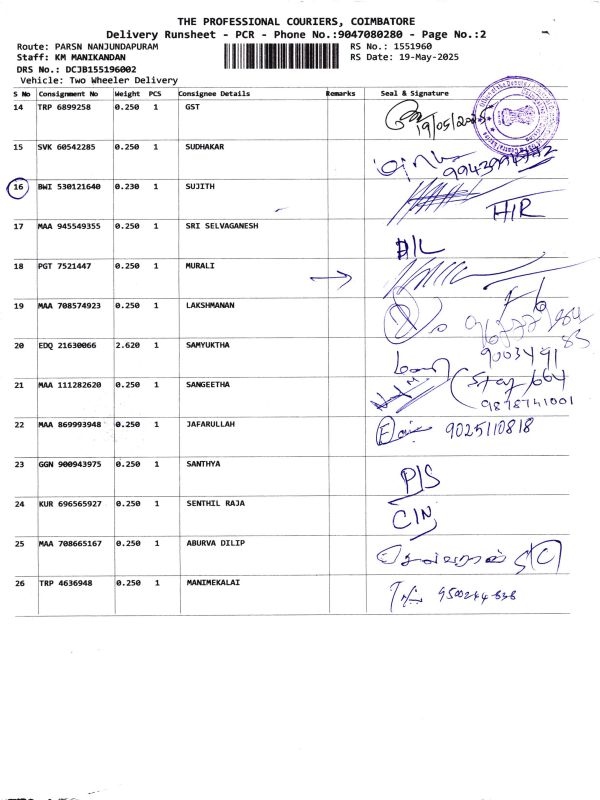 THE PROFESSIONAL COURIERS, COIMBATORE
Delivery Runsheet - PCR - Phone No.:9047080280 - Page No.:2
Route: PARSN NANJUNDAPURAM RS No.: 1551960
Staff: KM MANIKANDAN RS Date: 19-May-2025
DRS No.: DCJB155196002
Vehicle: Two Wheeler Delivery
S No Consignment No Weight PCS Consignee Details Remarks Seal & Signature
14 TRP 6899258 0.250 1 GST 19/05/2025
15 SVK 60542285 0.250 1 SUDHAKAR
16 BWI 530121640 0.230 1 SUJITH H/R
17 MAA 945549355 0.250 1 SRI SELVAGANESH D/L
18 PGT 7521447 0.250 1 MURALI
19 MAA 708574923 0.250 1 LAKSHMANAN
20 EDQ 21630066 2.620 1 SAMYUKTHA 9003491
21 MAA 111282620 0.250 1 SANGEETHA
22 MAA 869993948 0.250 1 JAFARULLAH 9025110818
23 GGN 900943975 0.250 1 SANTHYA P/S
24 KUR 696565927 0.250 1 SENTHIL RAJA C/N
25 MAA 708665167 0.250 1 ABURVA DILIP
26 TRP 4636948 0.250 1 MANIMEKALAI